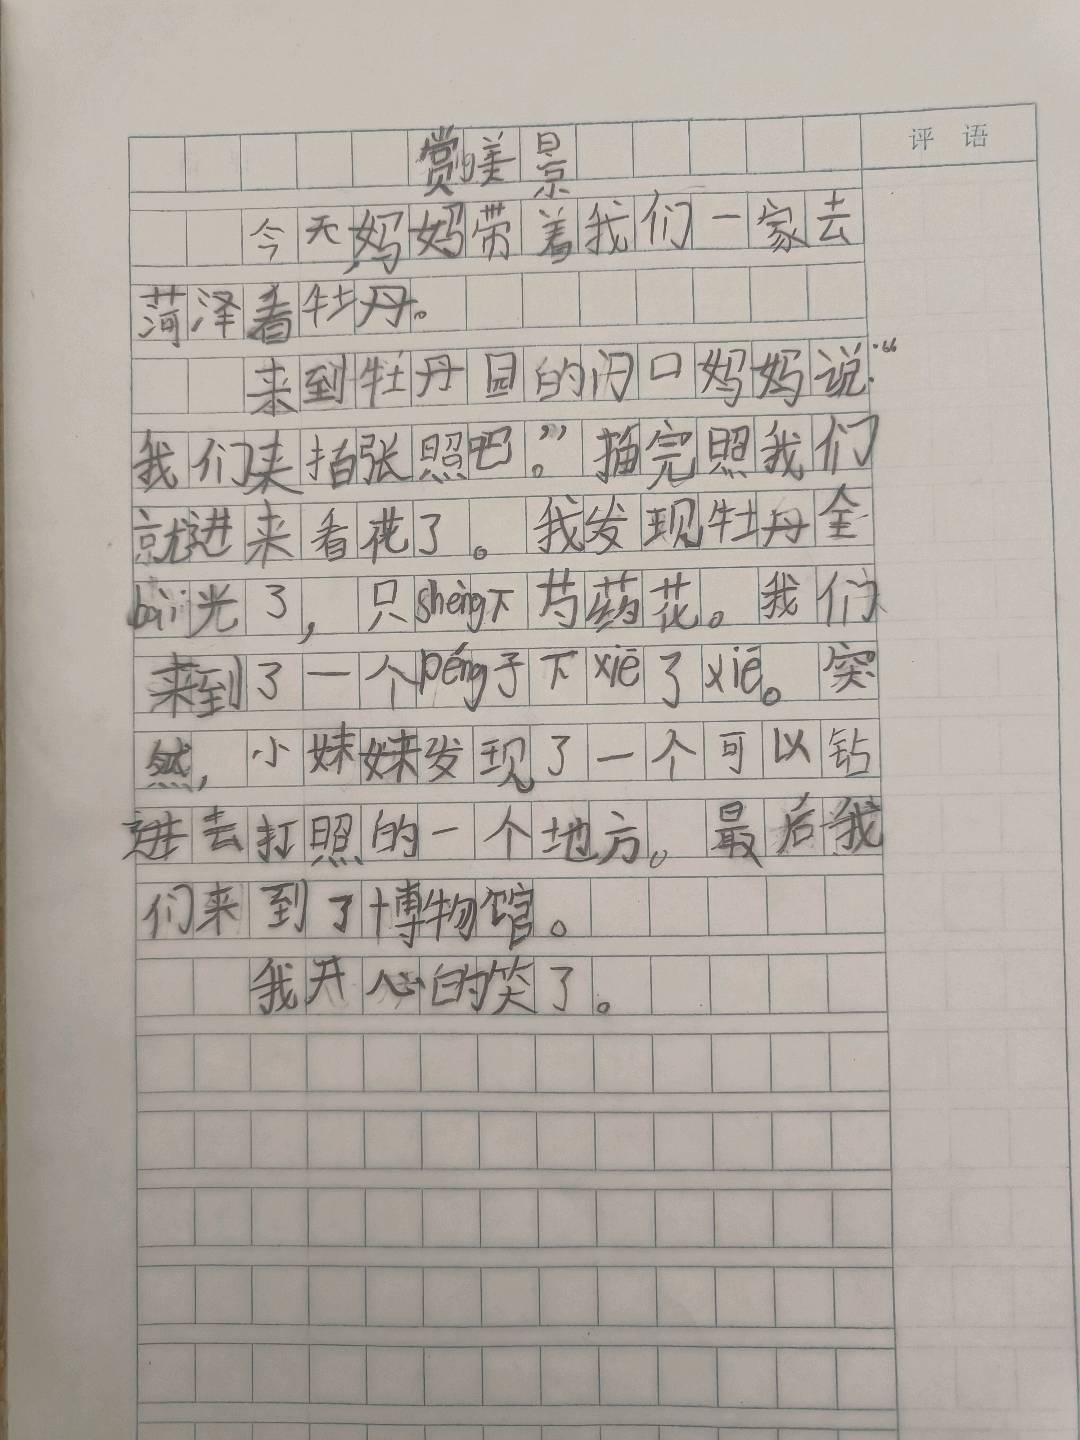 赏美景
评语
今天妈妈带着我们一家去
菏泽看牡丹。
来到牡丹园的闪口妈妈说:“
我们来拍张照吧。”拍完照我们
就进来看花了。我发现牡丹全
bài光了,只shèng下芍药花。我们
来到了一个péng子下xiē了xiē。突
然,小妹妹发现了一个可以钻
进去打照的一个地方。最后我
们来到了博物馆。
我开心的笑了。